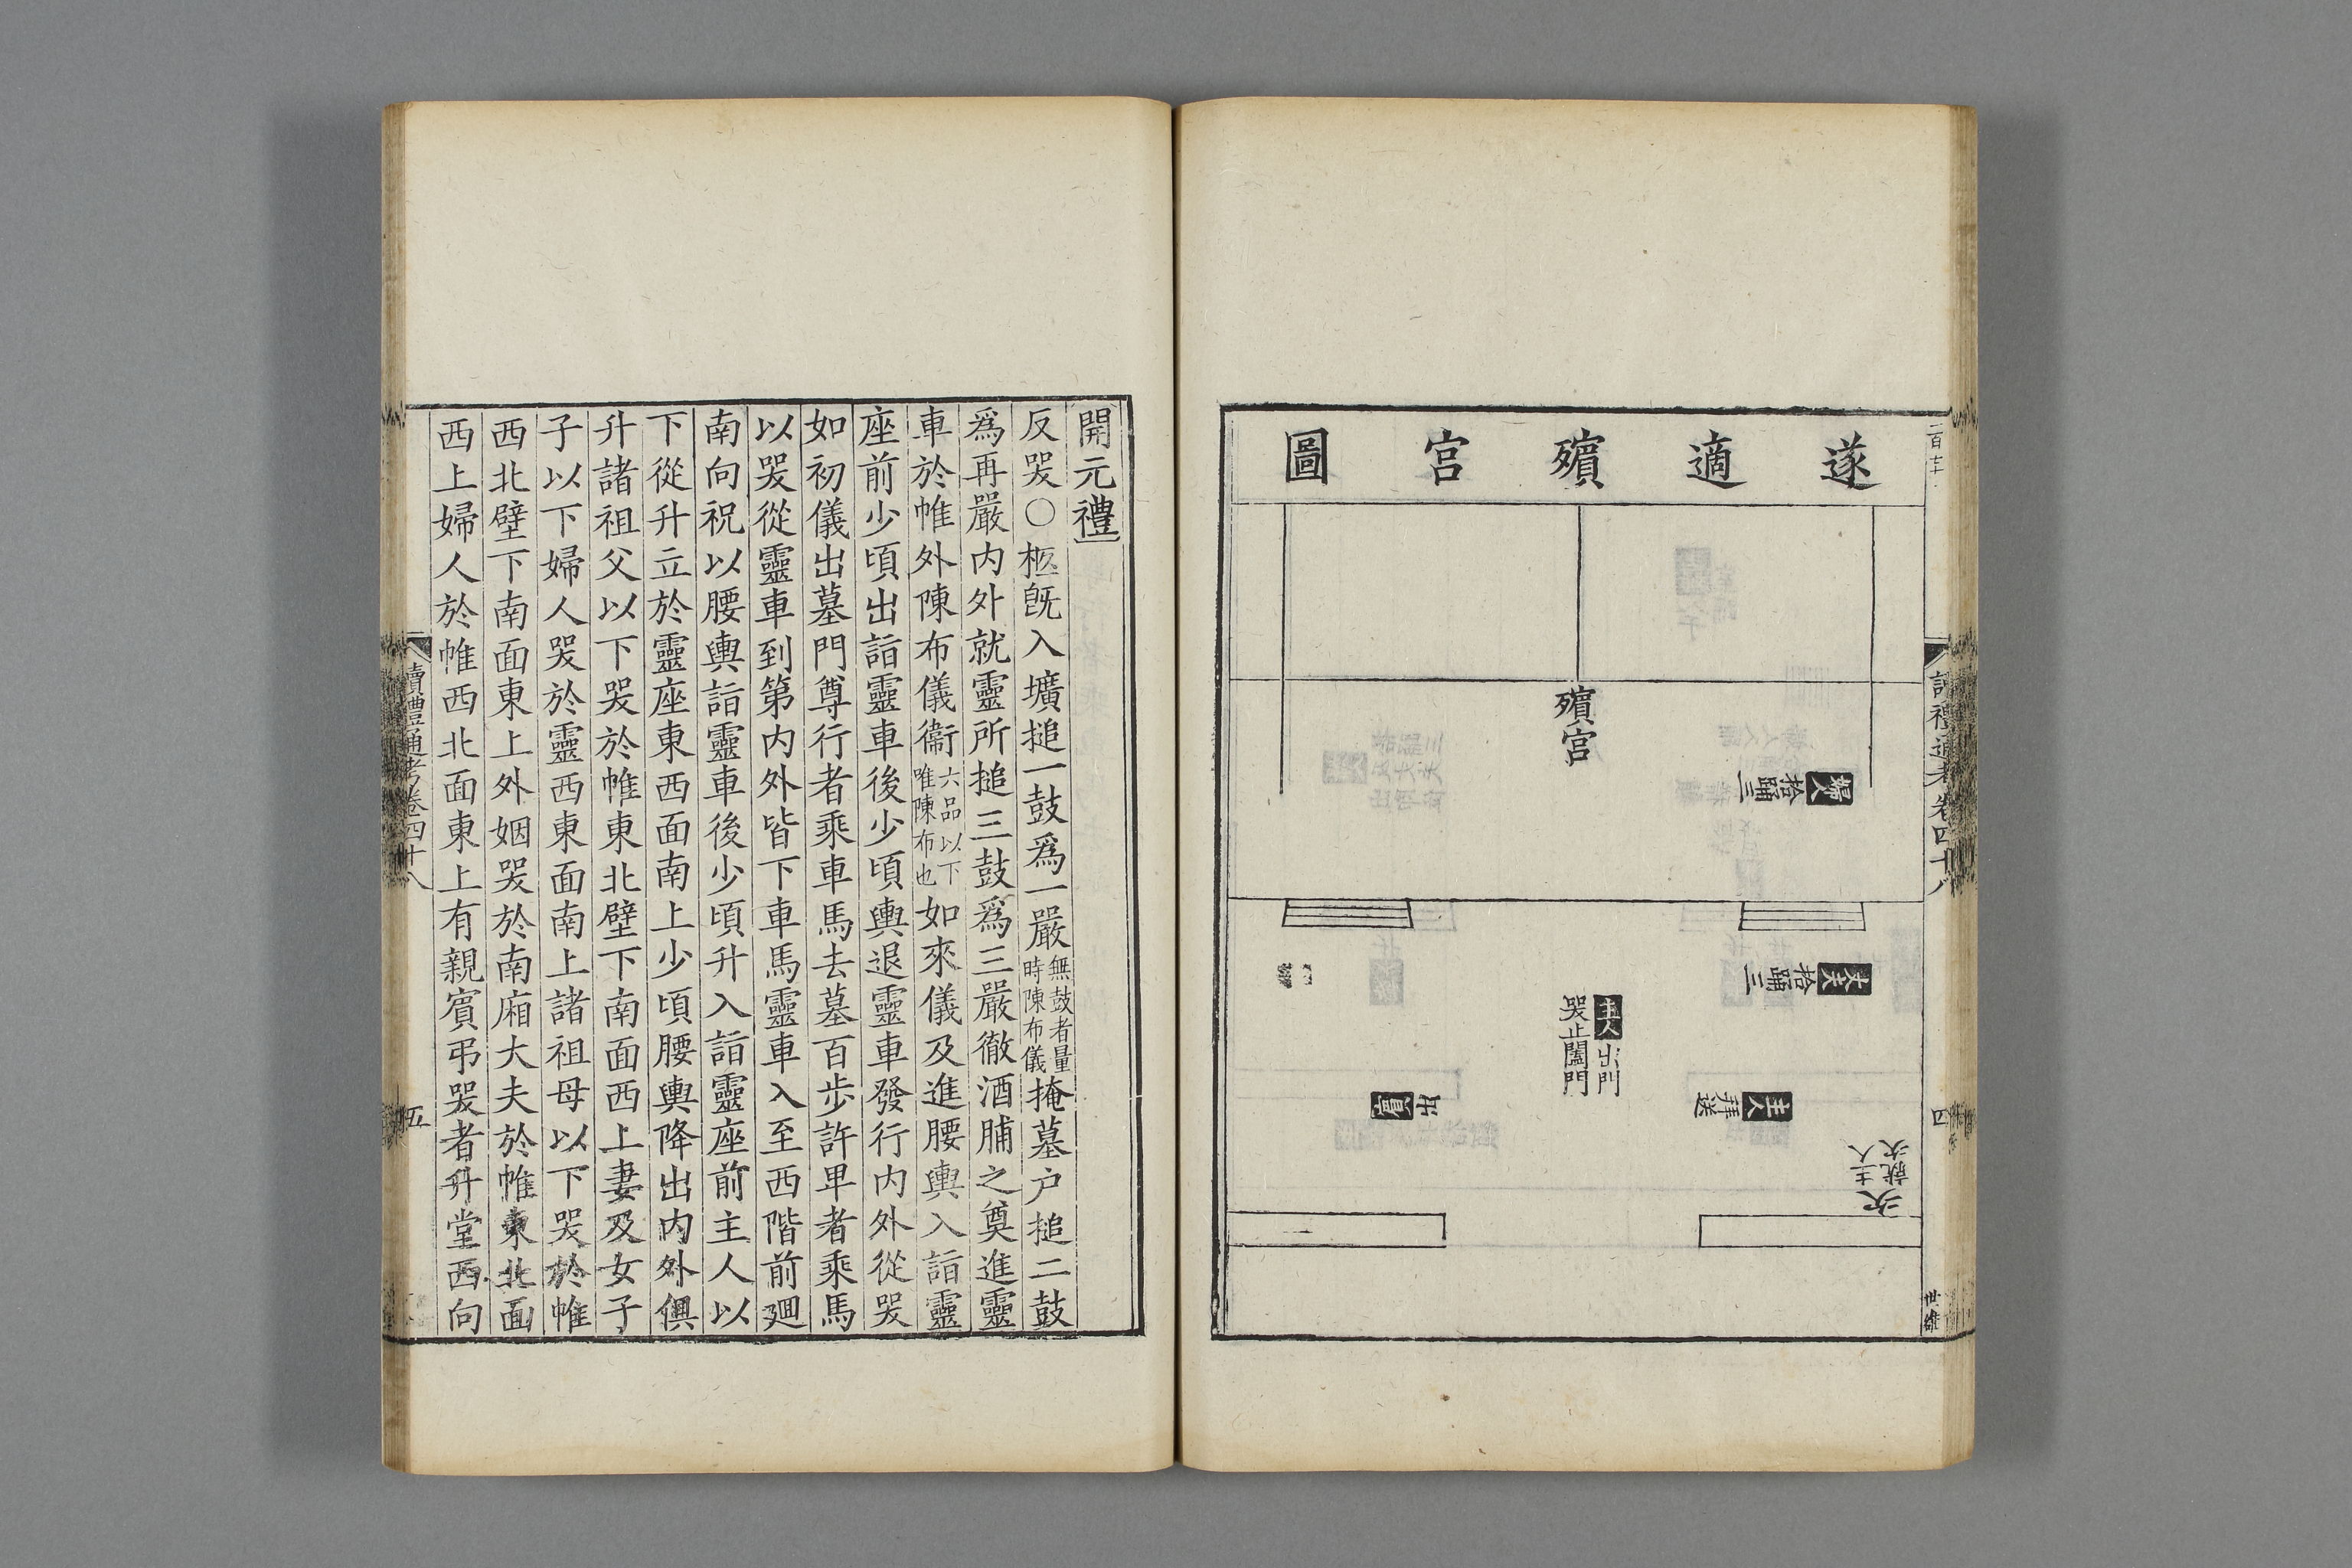 遂適殯宮圖
殯宮
婦人拾踊三
丈夫拾踊三
主人出門
哭止闔門
主人拜送
賓出
主人
就次
次
讀禮通考卷四十八
四
世雄
開元禮
反哭○柩旣入壙搥一鼓爲一嚴無鼓者量時陳布儀掩墓户搥二鼓
爲再嚴内外就靈所搥三鼓爲三嚴徹酒脯之奠進靈
車於帷外陳布儀衞六品以下唯陳布也如來儀及進腰輿入詣靈
座前少頃出詣靈車後少頃輿退靈車發行内外從哭
如初儀出墓門尊行者乘車馬去墓百步許卑者乘馬
以哭從靈車到第内外皆下車馬靈車入至西階前廻
南向祝以腰輿詣靈車後少頃升入詣靈座前主人以
下從升立於靈座東西面南上少頃腰輿降出内外俱
升諸祖父以下哭於帷東北壁下南面西上妻及女子
子以下婦人哭於靈西東面南上諸祖母以下哭於帷
西北壁下南面東上外姻哭於南廂大夫於帷東北面
西上婦人於帷西北面東上有親賓弔哭者升堂西向
讀禮通考卷四十八
五